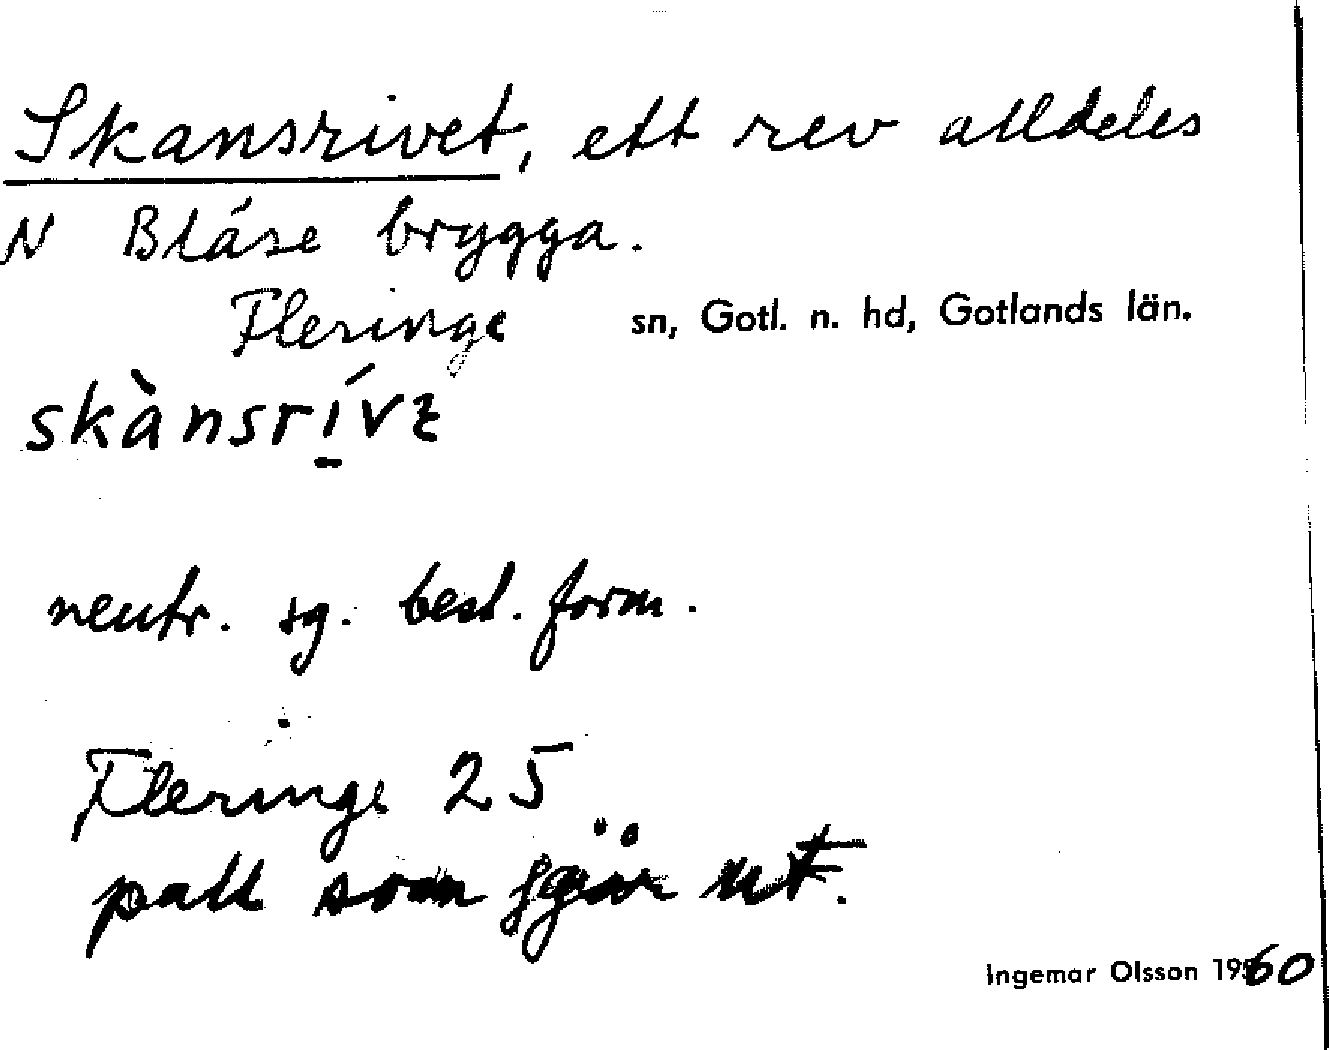 Skansrivet, ett rev alldeles
N Bläse brygga.
Fleringe sn, Gotl. n. hd, Gotlands län.
skànsrí̱vt
neutr. sg. best. form.
Fleringe 25
pall som går ut.
Ingemar Olsson 1960